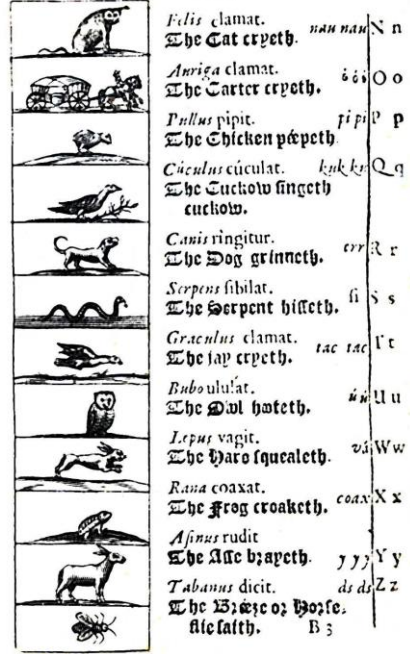 Felis clamat. nau nau N n
The Cat cryeth.
Auriga clamat. ó ó ó O o
The Carter cryeth.
Pullus pipit. pi pi P p
The Chicken pæpeth.
Cúculus cúculat. kuk ku Q q
The Cuckow ſingeth
cuckow.
Canis ringitur. err R r
The Dog grinneth.
Serpens ſibilat. ſi S s
The Serpent hiſſeth.
Graculus clamat. tac tac T t
The Jay cryeth.
Bubo ululat. ú ú U u
The Owl hooteth.
Lepus vagit. vá W w
The Hare ſquealeth.
Rana coaxat. coax X x
The Frog croaketh.
Aſinus rudit y y y Y y
The Aſſe brayeth.
Tabanus dicit. ds ds Z z
The Breeze or Horſe-
flie ſaith. B 3